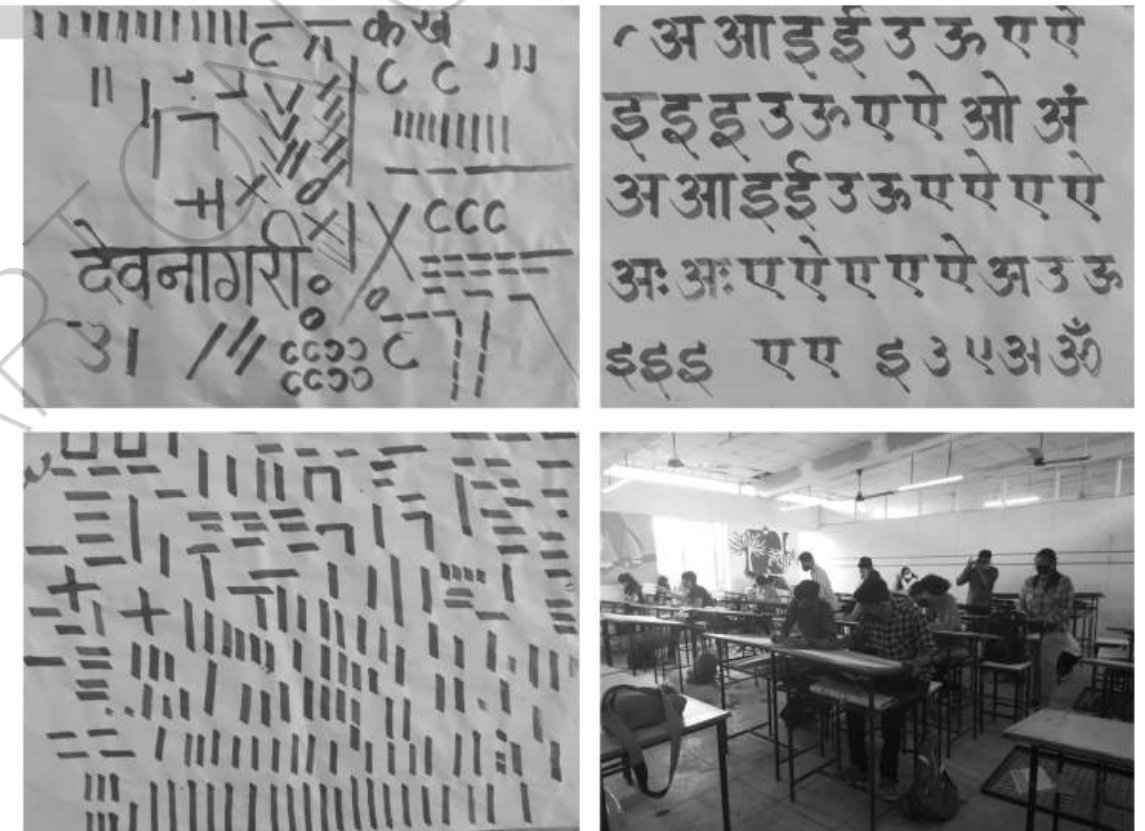 क ख
देवनागरी
अ आ इ ई उ ऊ ए ऐ
इ इ इ उ ऊ ए ऐ ओ अं
अ आ इ ई उ ऊ ए ऐ ए ऐ
अः अः ए ऐ ए ए ऐ अ उ ऊ
इ इ इ ए ए इ उ ए अ ॐ